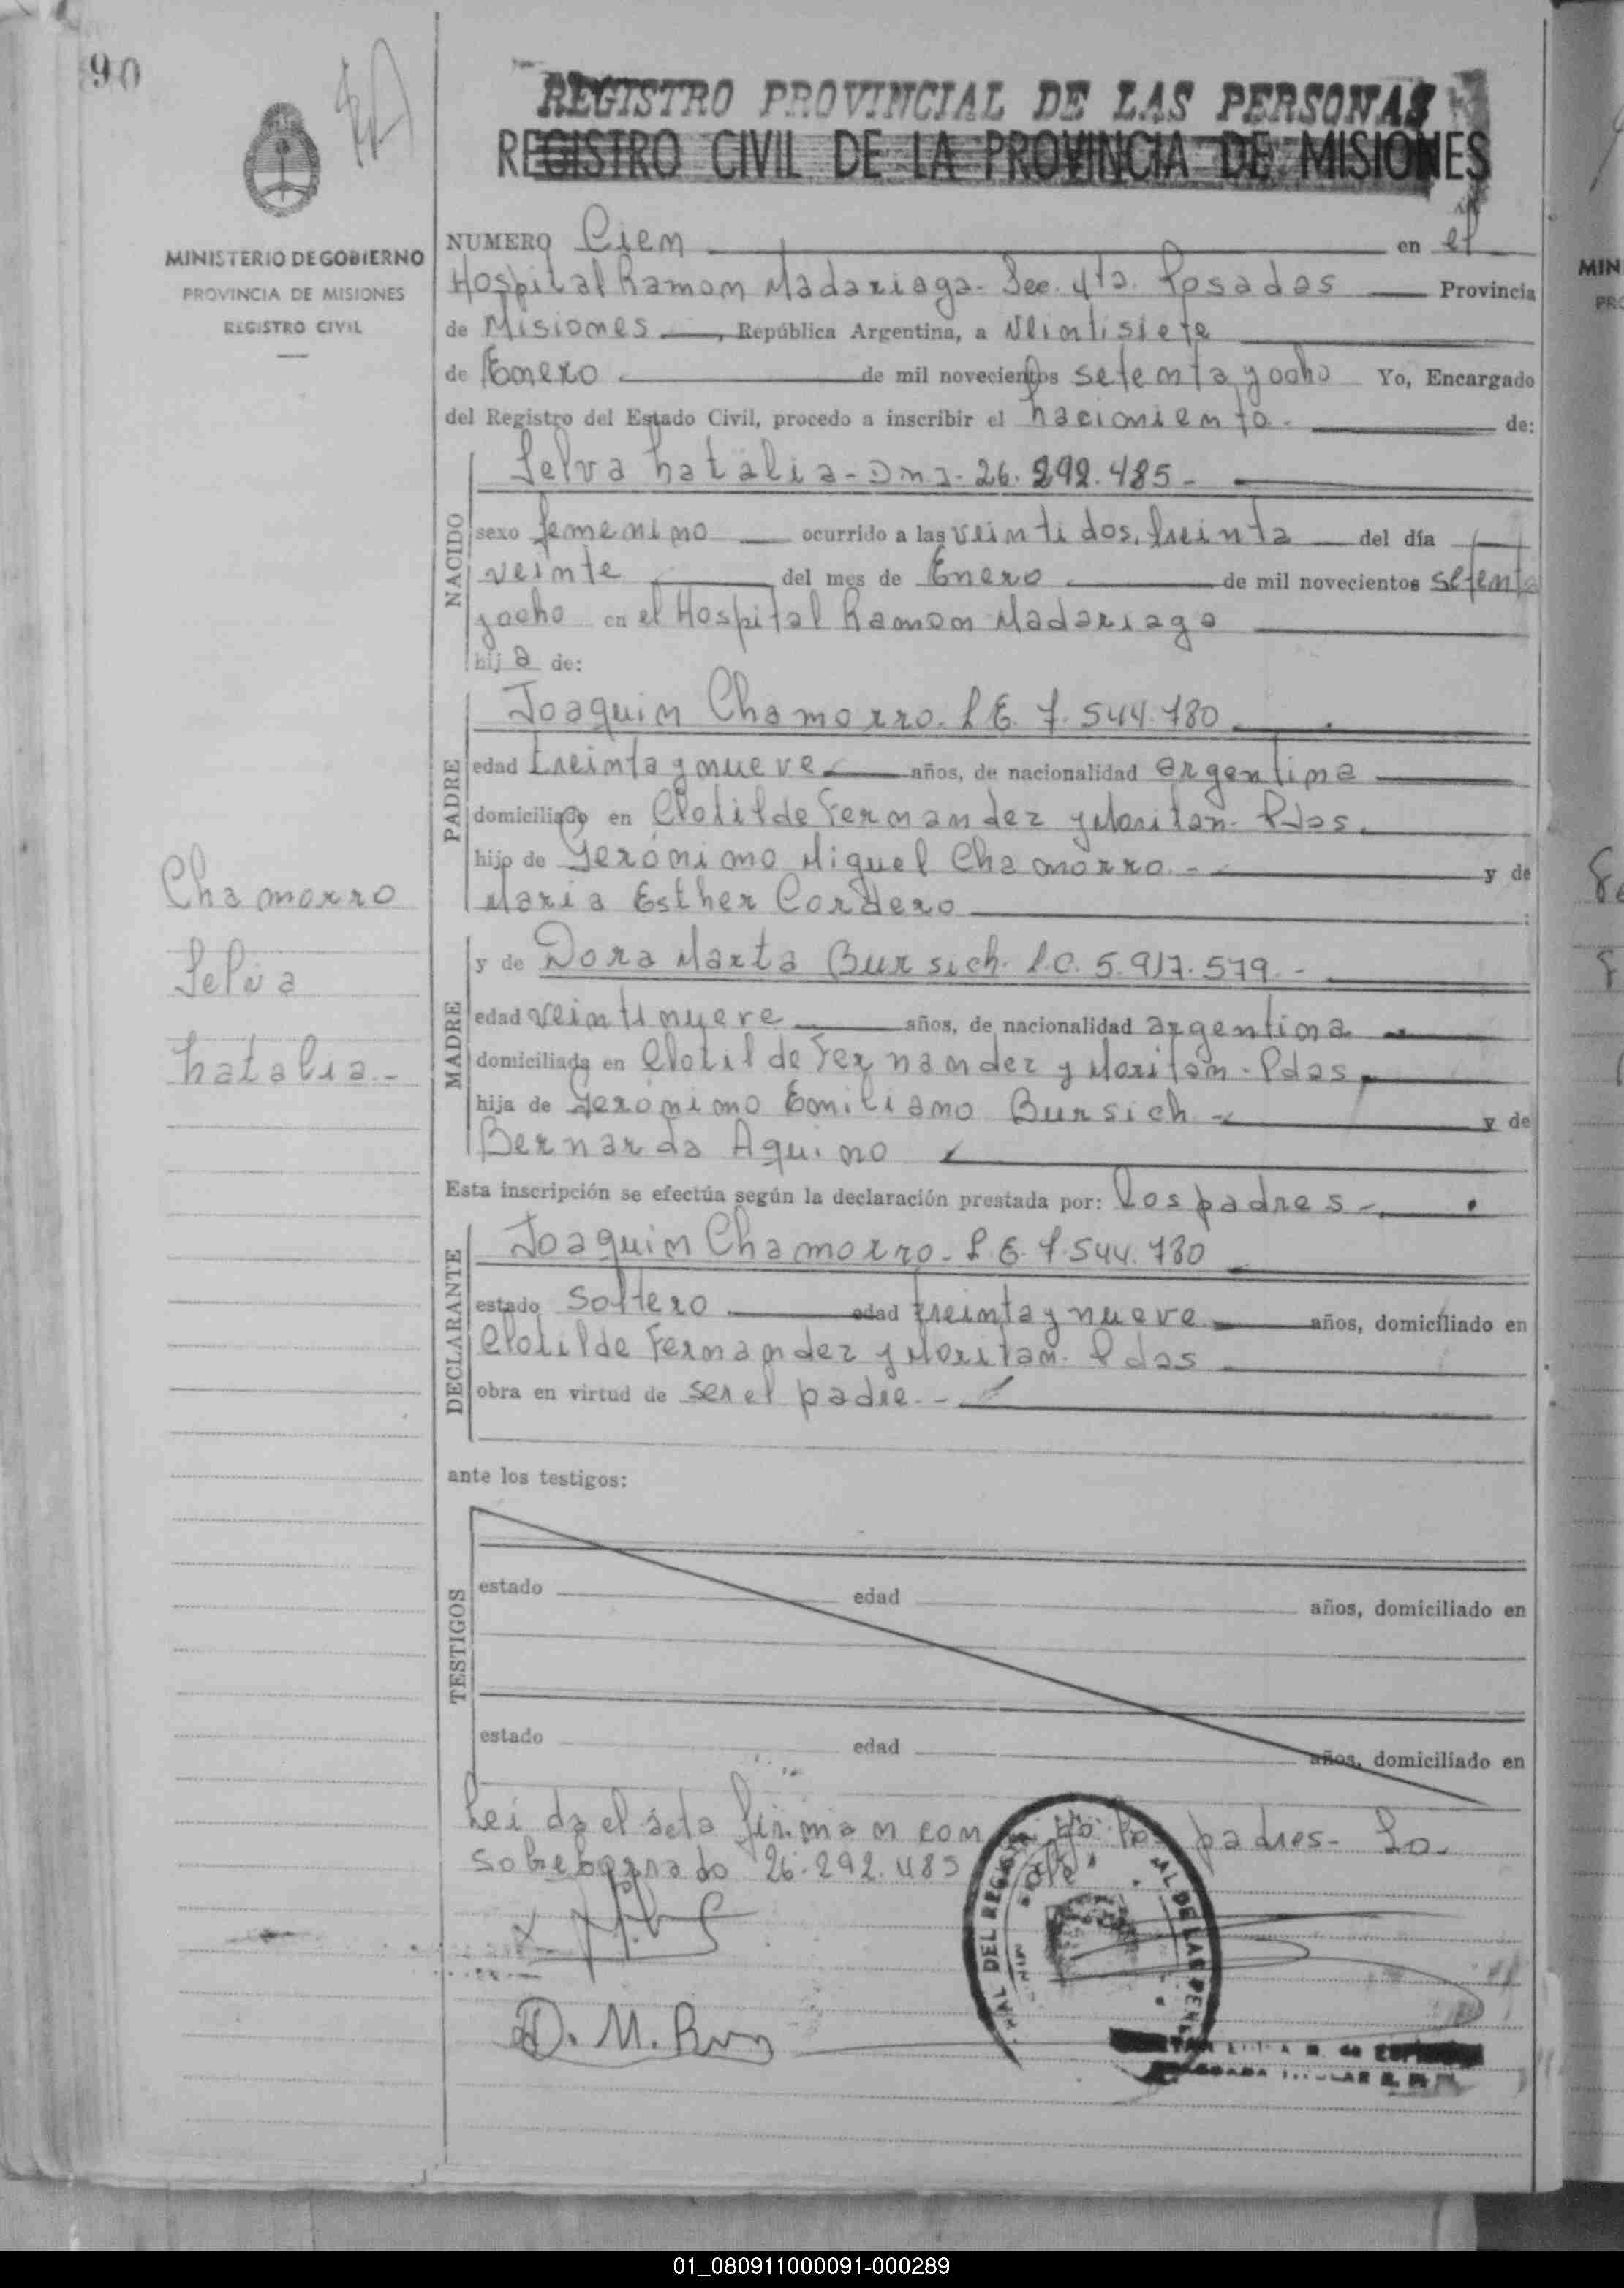 90
REGISTRO PROVINCIAL DE LAS PERSONAS
REGISTRO CIVIL DE LA PROVINCIA DE MISIONES
MINISTERIO DE GOBIERNO
PROVINCIA DE MISIONES
REGISTRO CIVIL
NUMERO Cien en el
Hospital Ramon Madariaga - Sec. 4ta. Posadas Provincia
de Misiones, República Argentina, a Veintisiete
de Enero de mil novecientos setenta y ocho Yo, Encargado
del Registro del Estado Civil, procedo a inscribir el nacimiento - de:
NACIDO
Selva Natalia - DNI - 26.292.485 -
sexo femenino ocurrido a las veintidos, treinta del día
veinte del mes de Enero de mil novecientos setenta
y ocho en el Hospital Ramon Madariaga
hija de:
PADRE
Joaquin Chamorro - L.E. 7.544.780
edad treinta y nueve años, de nacionalidad argentina
domiciliado en Clotilde Fernandez y Moritan - Pdas.
hijo de Jerónimo Miguel Chamorro - y de
Maria Esther Cordero :
MADRE
y de Dora Marta Bursich - L.C. 5.917.579 -
edad veintinueve años, de nacionalidad argentina
domiciliada en Clotilde Fernandez y Moritan - Pdas.
hija de Jerónimo Emiliano Bursich - y de
Bernarda Aquino
Esta inscripción se efectúa según la declaración prestada por: los padres -
DECLARANTE
Joaquin Chamorro - L.E. 7.544.780
estado soltero edad treinta y nueve años, domiciliado en
Clotilde Fernandez y Moritan - Pdas
obra en virtud de ser el padre. -
Chamorro
Selva
Natalia -
ante los testigos:
TESTIGOS
estado edad años, domiciliado en
estado edad años, domiciliado en
Leida el acta firman con los padres - Lo
sobreborrado 26.292.485 vale
D. M. Bur
01_080911000091-000289